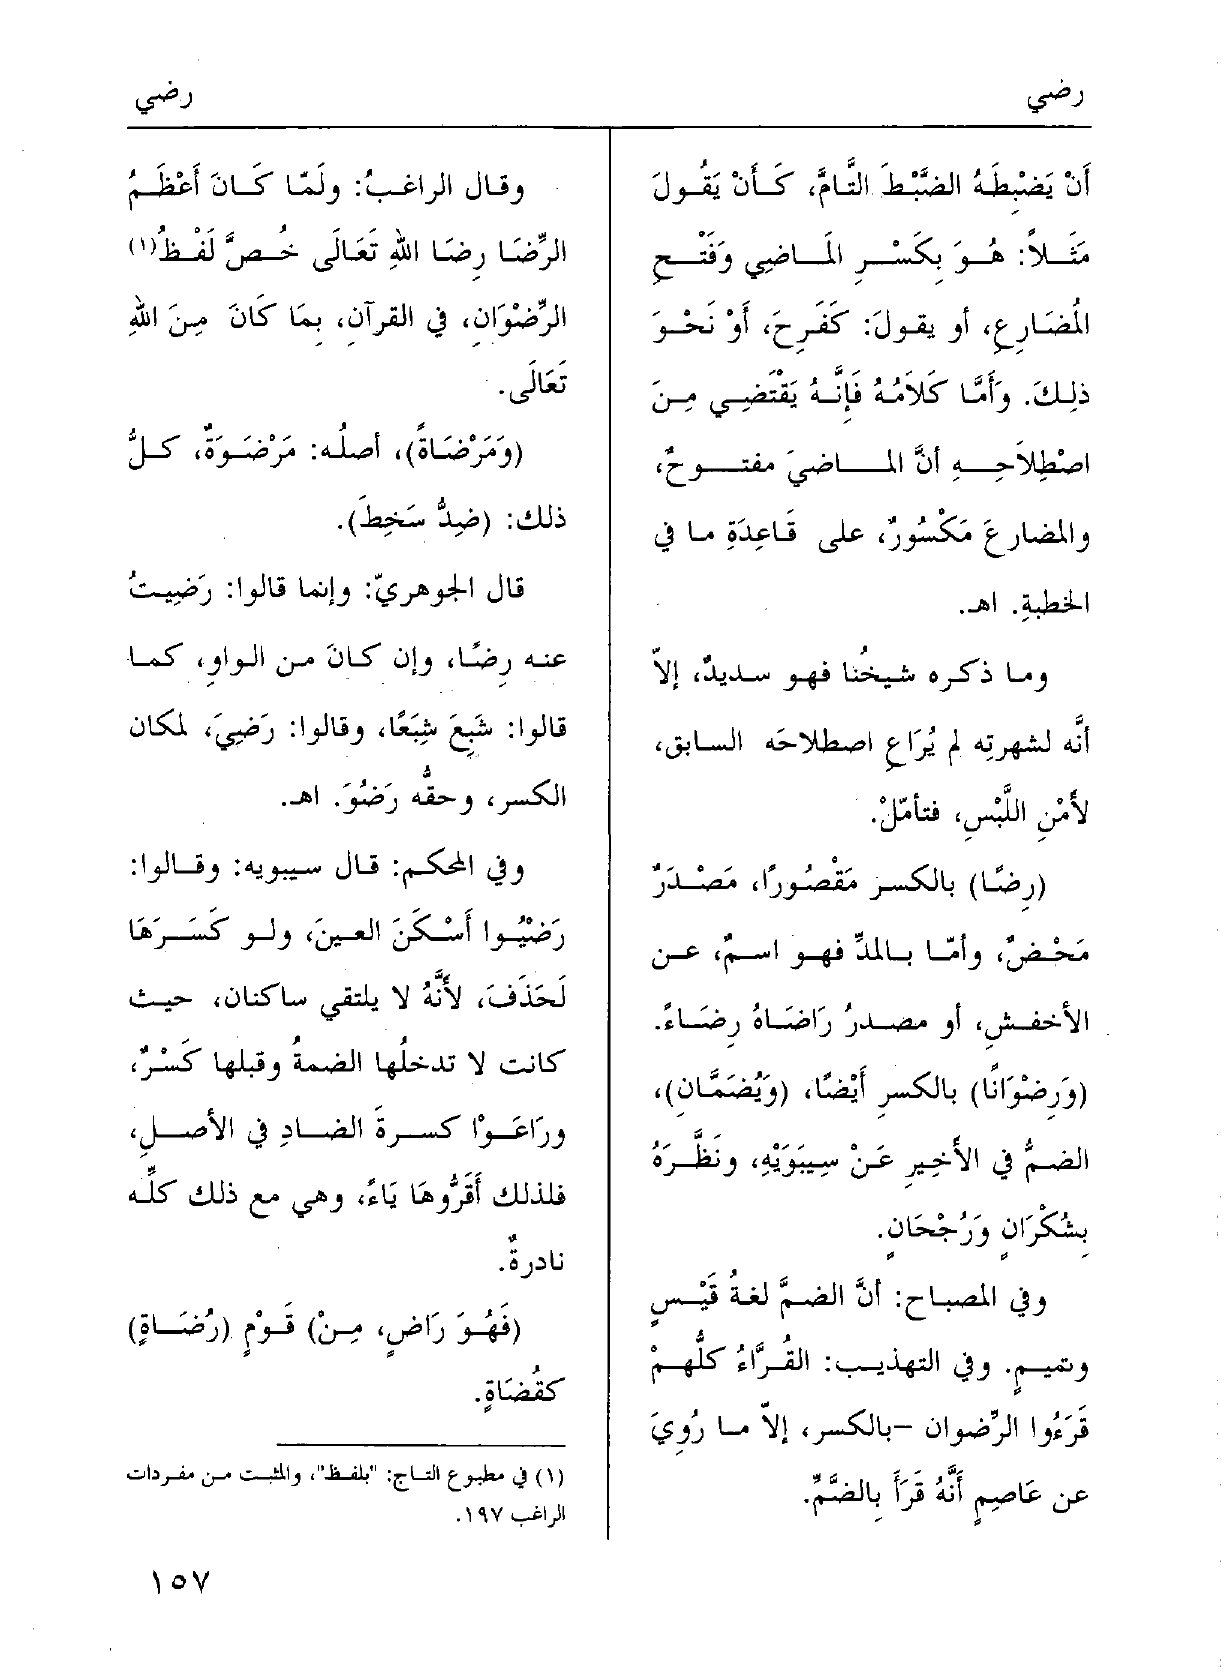 رضي
رضي
أَنْ يَضْبِطَهُ الضَّبْطَ التَّامَّ، كَأَنْ يَقُولَ
مَثَلاً: هُوَ بِكَسْرِ الْمَاضِي وَفَتْحِ
الْمُضَارِعِ، أو يقولَ: كَفَرِحَ، أَوْ نَحْوَ
ذلِكَ. وَأَمَّا كَلاَمُهُ فَإِنَّهُ يَقْتَضِي مِنَ
اصْطِلاَحِهِ أنَّ الماضيَ مفتوحٌ،
والمضارِعَ مَكْسُورٌ، على قَاعِدَةِ ما في
الخطبةِ. اهـ.
وما ذكره شيخُنا فهو سديدٌ، إلاّ
أنَّه لشهرتِه لم يُرَاعِ اصطلاحَه السابق،
لأَمْنِ اللَّبْسِ، فتأمّلْ.
(رِضًا) بالكسر مَقْصُورًا، مَصْدَرٌ
مَحْضٌ، وأمّا بالمدِّ فهو اسمٌ، عن
الأخفش، أو مصدرُ رَاضَاهُ رِضَاءً.
(وَرِضْوَانًا) بالكسرِ أَيْضًا، (وَيُضَمَّانِ)،
الضمُّ في الأخيرِ عَنْ سِيبَوَيْهِ، ونَظَّرَهُ
بِشُكْرَانٍ وَرُجْحَانٍ.
وفي المصباح: أنَّ الضمَّ لغةُ قَيْسٍ
وتميمٍ. وفي التهذيب: القُرَّاءُ كلُّهمْ
قَرَءُوا الرِّضوان –بالكسر، إلاّ ما رُوِيَ
عن عَاصِمٍ أَنَّهُ قَرَأَ بِالضَّمِّ.
وقال الراغبُ: ولَمّا كَانَ أَعْظَمُ
الرِّضَا رِضَا اللهِ تَعَالَى خُصَّ لَفْظُ(١)
الرِّضْوَانِ، في القرآنِ، بِمَا كَانَ مِنَ اللهِ
تَعَالَى.
(وَمَرْضَاةً)، أصلُه: مَرْضَوَةٌ، كلُّ
ذلك: (ضِدُّ سَخِطَ).
قال الجوهريّ: وإنما قالوا: رَضِيتُ
عنه رِضًا، وإن كانَ من الواوِ، كما
قالوا: شَبِعَ شِبَعًا، وقالوا: رَضِيَ، لمكان
الكسر، وحقُّه رَضُوَ. اهـ.
وفي المحكم: قال سيبويه: وقالوا:
رَضْيُوا أَسْكَنَ العينَ، ولو كَسَرَهَا
لَحَذَفَ، لأَنَّهُ لا يلتقي ساكنان، حيث
كانت لا تدخلُها الضمةُ وقبلَها كَسْرٌ،
ورَاعَوْا كسرةَ الضادِ في الأصلِ،
فلذلك أَقَرُّوهَا يَاءً، وهي مع ذلك كلِّه
نادرةٌ.
(فَهُوَ رَاضٍ، مِنْ) قَوْمٍ (رُضَاةٍ)
كقُضَاةٍ.
(١) في مطبوع التاج: "بلفظ"، والمثبت من مفردات
الراغب ١٩٧.
١٥٧